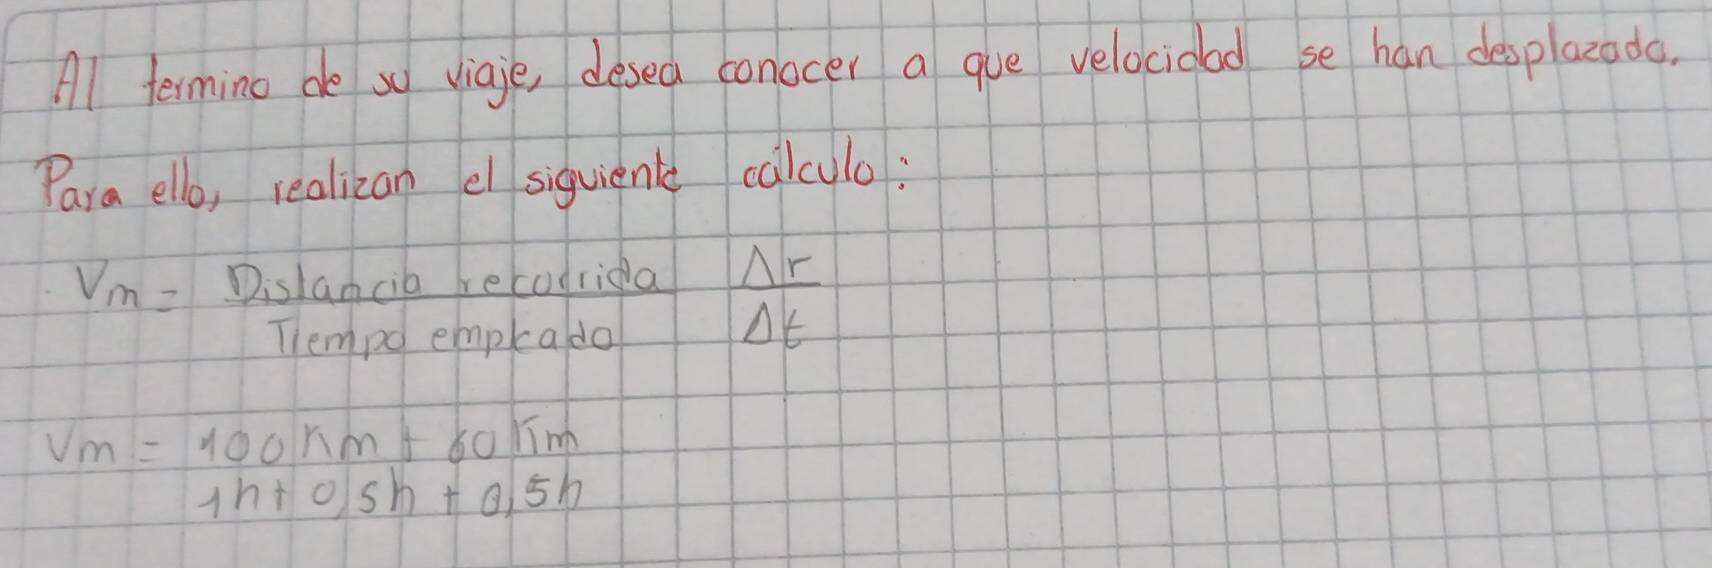 Al termino de su viaje, desea conocer a que velocidad se han desplazado.
Para ello, realizan el siguiente cálculo:
Vm = Distancia recorrida Δr
Tiempo empleado Δt
Vm = 100 Km + 60 Km
1h + 0,5h + 0,5h